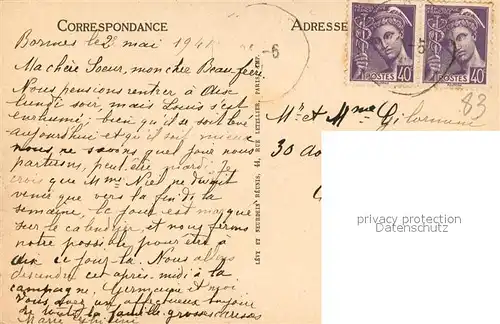 CORRESPONDANCE
Bormes le 2 mai 1941
Ma chère Soeur, mon cher Beau frère
Nous pensions rentrer à
lundi soir mais Louis s'est
enrhumé; bien qu'il se soit levé
aujourd'hui et qu'il soit mieux
nous ne savons quel jour nous
partirons, peut être mardi. Je
crois que Mme Niel ne devait
venir que vers la fin de la
semaine, le jour est marqué
sur le calendrier et nous ferons
notre possible pour être à
ce jour là. Nous allons
descendre cet après midi à la
campagne. Germaine et moi
vous avec un affectueux bonjour
de toute la famille grosses bises
Marie
LÉVY ET NEURDEIN RÉUNIS, 44, RUE LETELLIER, PARIS
ADRESSE
-6
POSTES 40
POSTES 40
83
Mr et Mme
30
privacy protection
Datenschutz